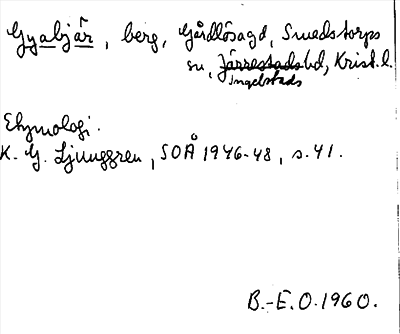 Gyabjär, berg, Gårdlösagd, Smedstorps
sn, Järrestads hd, Krist.l.
Ingelstads
Etymologi.
K. G. Ljunggren, SOÅ 1946-48, s. 41.
B.-E.O. 1960.